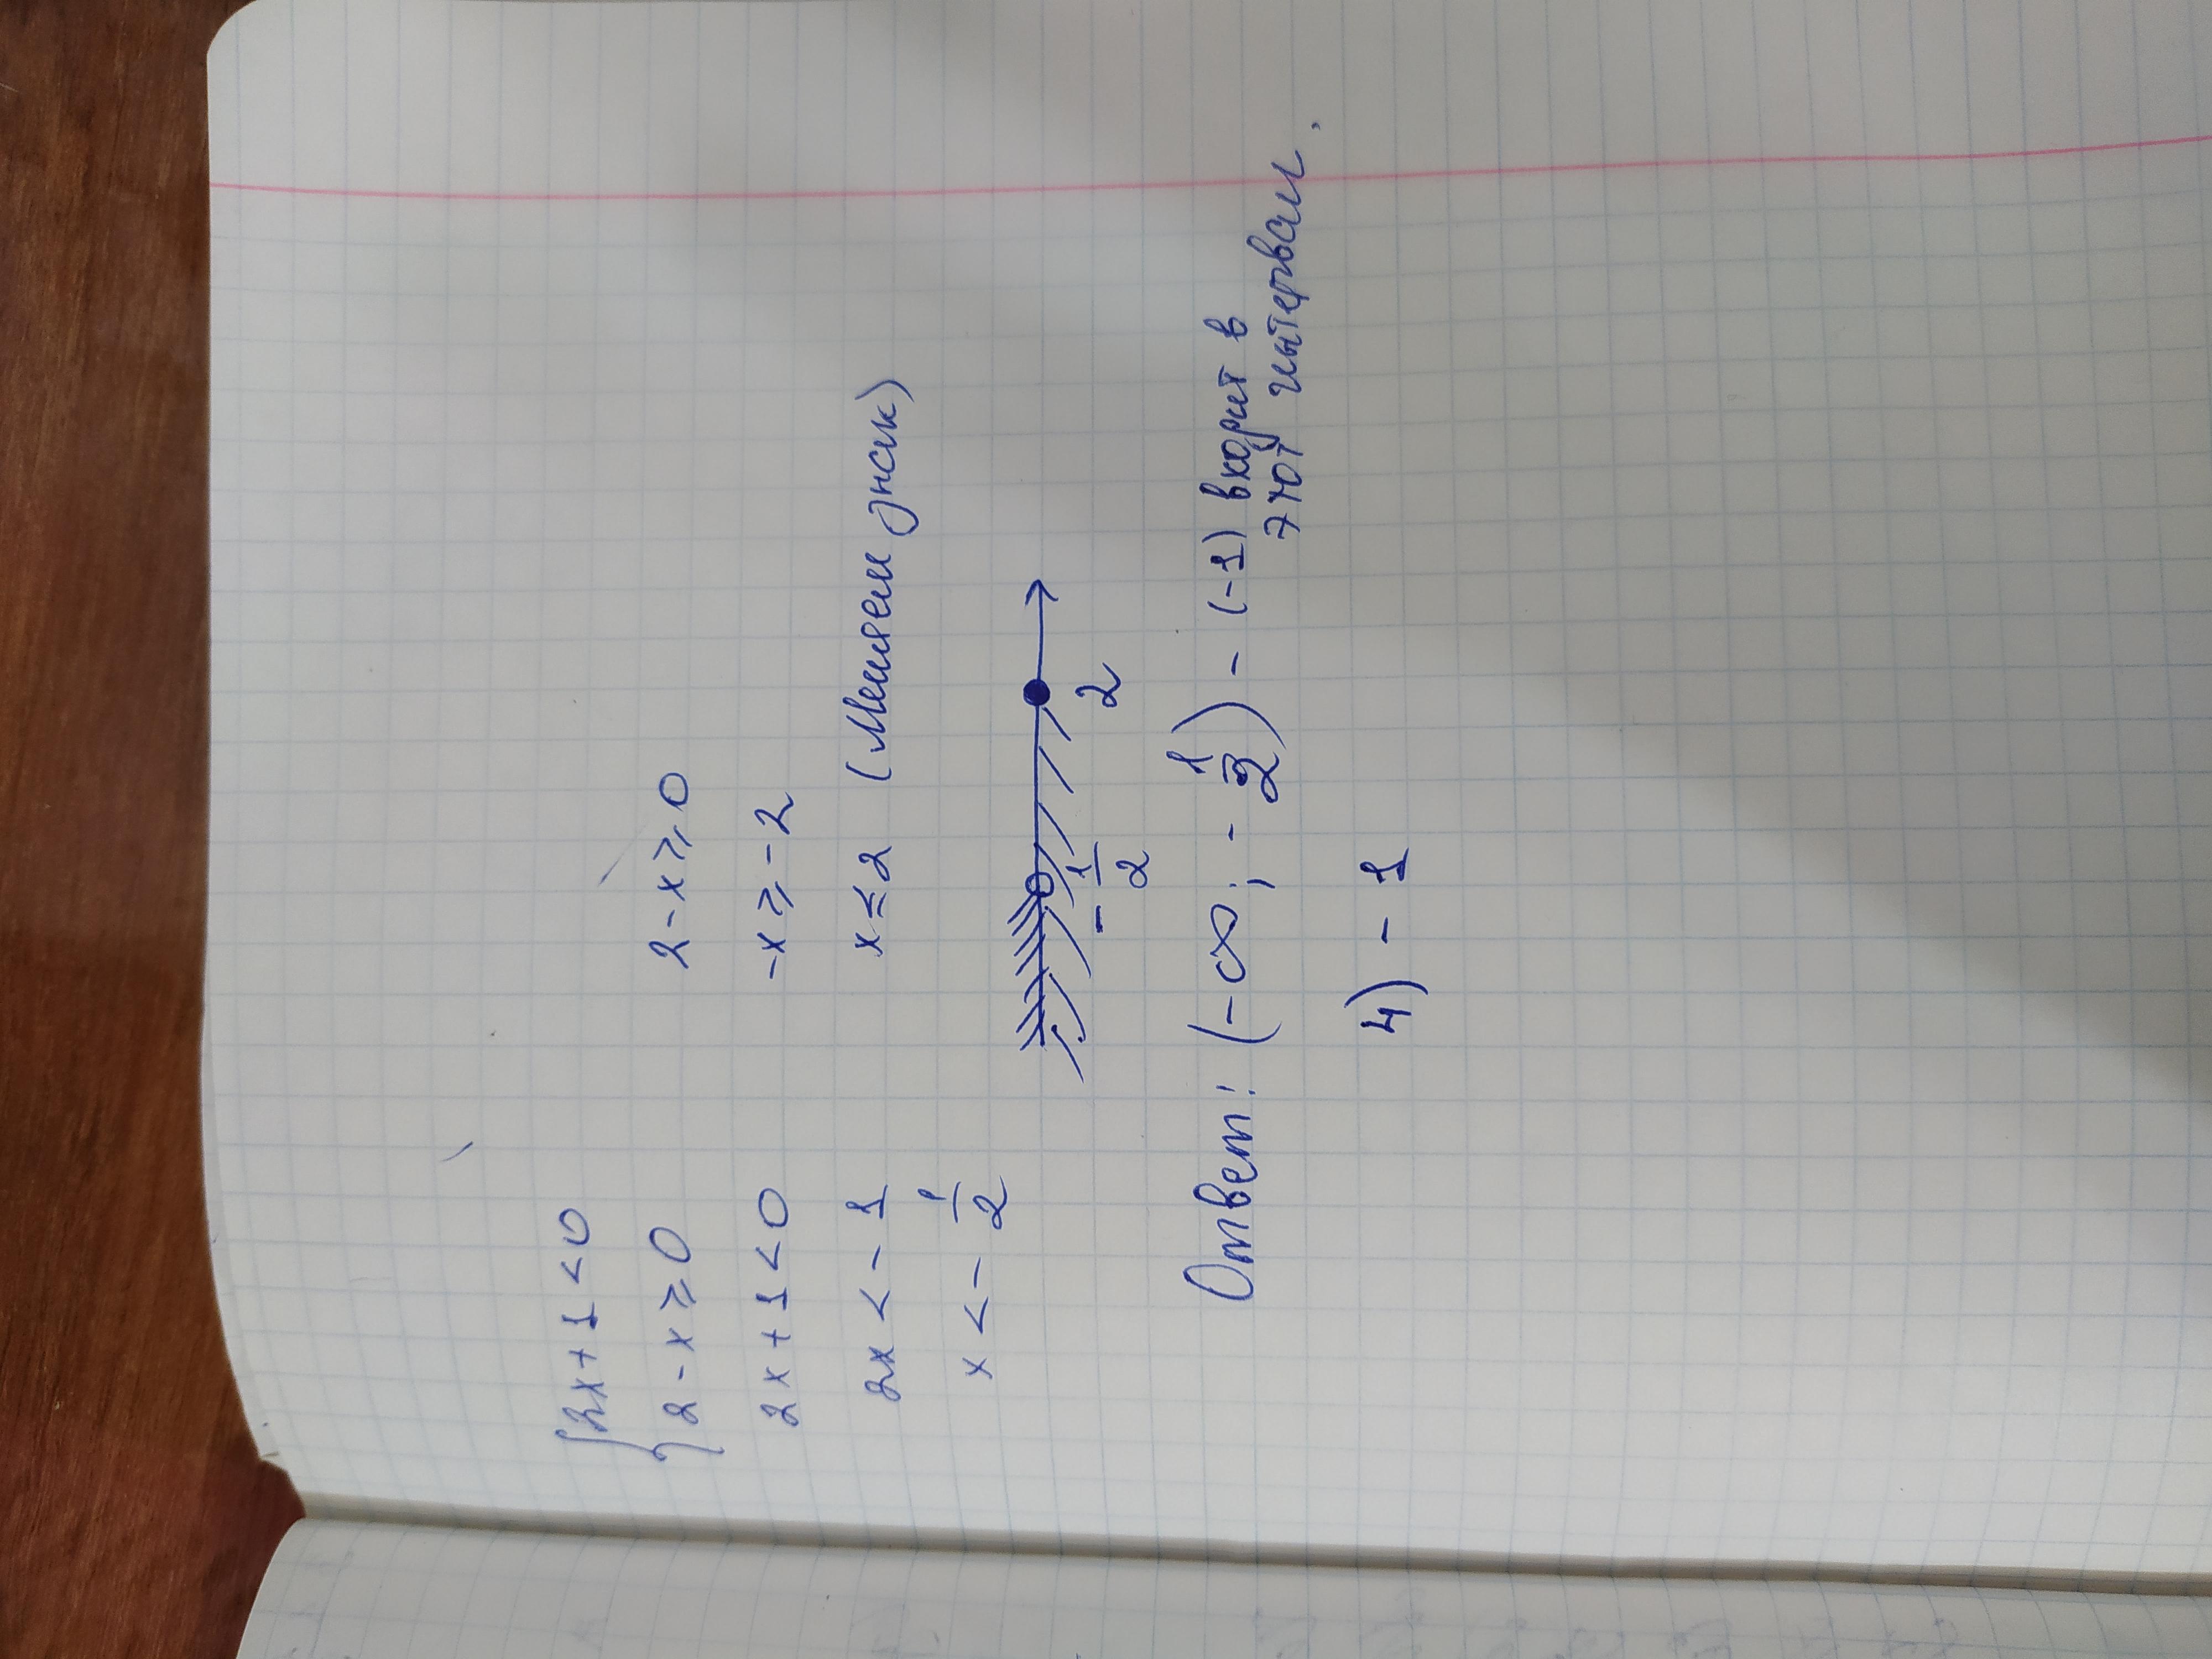 {2x+1<0
{2-x≥0
2-x≥0
2x+1<0
-x≥-2
2x<-1
x≤2 (меняем знак)
x<-1/2
-1/2 2
Ответ: (-∞; -1/2) - (-1) входит в
этот интервал.
4) -1